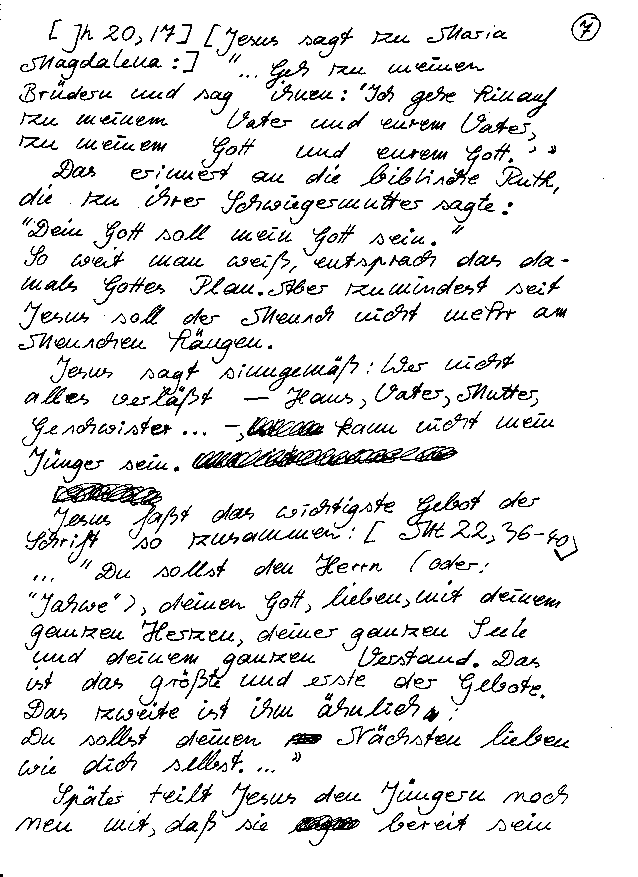 [Jh 20,17] [Jesus sagt zu Maria
7
Magdalena:] "... Geh zu meinen
Brüdern und sag ihnen: 'Ich gehe hinauf
zu meinem Vater und eurem Vater,
zu meinem Gott und eurem Gott.' "
Das erinnert an die biblische Ruth,
die zu ihrer Schwiegermutter sagte:
"Dein Gott soll mein Gott sein."
So weit man weiß, entsprach das da-
mals Gottes Plan. Aber zumindest seit
Jesus soll der Mensch nicht mehr am
Menschen hängen.
Jesus sagt sinngemäß: Wer nicht
alles verläßt – Haus, Vater, Mutter,
Geschwister ... –, kann nicht mein
Jünger sein.
Jesus faßt das wichtigste Gebot der
Schrift so zusammen: [Mt 22,36-40]
... "Du sollst den Herrn (oder:
"Jahwe"), deinen Gott, lieben, mit deinem
ganzen Herzen, deiner ganzen Seele
und deinem ganzen Verstand. Das
ist das größte und erste der Gebote.
Das zweite ist ihm ähnlich:
Du sollst deinen Nächsten lieben
wie dich selbst. ... "
Später teilt Jesus den Jüngern noch
neu mit, daß sie bereit sein